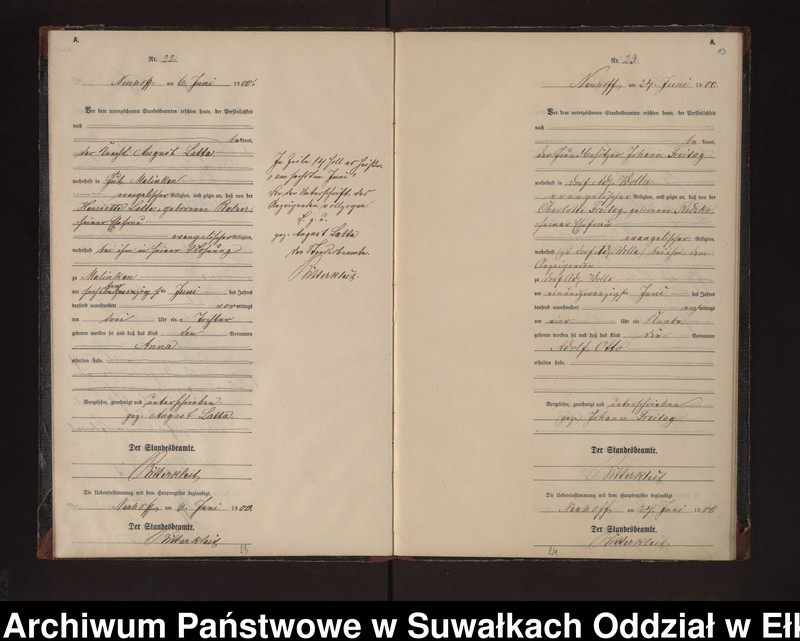 A.
Nr. 22.
Neuhoff, am 6. Juni 1900.
Vor dem unterzeichneten Standesbeamten erschien heute, der Persönlichkeit
nach
be kannt,
der August Latta
wohnhaft in Gut Malinken
evangelischer Religion, und zeigte an, daß von der
Henriette Latta, geborenen
seiner Ehefrau
evangelischer Religion,
wohnhaft bei ihm in seiner Wohnung
zu Malinken
am Juni des Jahres
tausend neunhundert vor mittags
um drei Uhr ein e Tochter
geboren worden sei und daß das Kind den Vornamen
Anna
erhalten habe.
Vorgelesen, genehmigt und unterschrieben
gez. August Latta.
Der Standesbeamte.
Ritterkleit
Die Uebereinstimmung mit dem Hauptregister beglaubigt.
Neuhoff, am 6. Juni 1900.
Der Standesbeamte.
Ritterkleit
In Zeile 14 soll es heißen
am sechsten Juni
Vor der Unterschrift des
Anzeigenden vollzogen
gez. August Latta
Der Standesbeamte.
Ritterkleit
A.
13
Nr. 23.
Neuhoff, am 24. Juni 1900.
Vor dem unterzeichneten Standesbeamten erschien heute, der Persönlichkeit
nach
be kannt,
der Grundbesitzer Johann Freitag
wohnhaft in Dorf Adl. Wolla
evangelischer Religion, und zeigte an, daß von der
Charlotte Freitag, geborenen
seiner Ehefrau
evangelischer Religion,
wohnhaft zu Dorf Adl. Wolla, bei ihm dem
Anzeigenden
zu Dorf Adl. Wolla
am einundzwanzigsten Juni des Jahres
tausend neunhundert nach mittags
um vier Uhr ein Knabe
geboren worden sei und daß das Kind die Vornamen
Adolf Otto
erhalten habe.
Vorgelesen, genehmigt und unterschrieben
gez. Johann Freitag
Der Standesbeamte.
Ritterkleit
Die Uebereinstimmung mit dem Hauptregister beglaubigt.
Neuhoff, am 24. Juni 1900.
Der Standesbeamte.
Ritterkleit
Archiwum Państwowe w Suwałkach Oddział w Eł